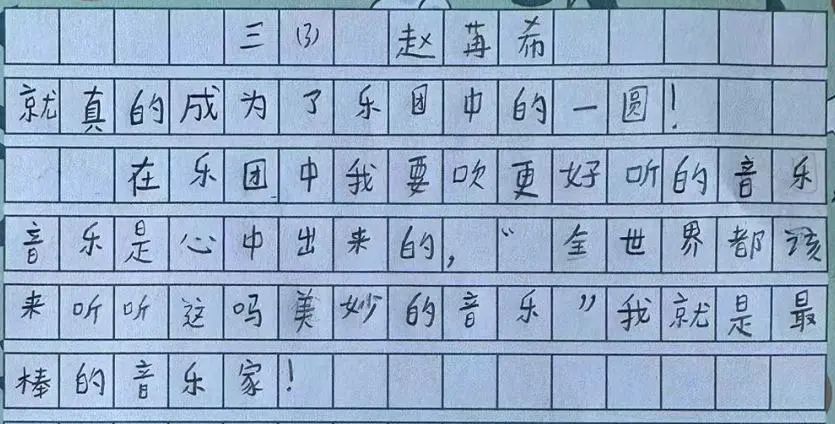 三(3) 赵苒希
就真的成为了乐团中的一圆！
在乐团中我要吹更好听的音乐
音乐是心中出来的，“全世界都该
来听听这吗美妙的音乐”我就是最
棒的音乐家！